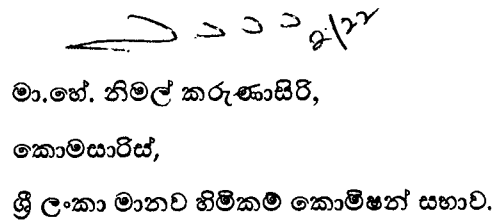 2/22
මා.හේ. නිමල් කරුණාසිරි,
කොමසාරිස්,
ශ්‍රී ලංකා මානව හිමිකම් කොමිෂන් සභාව.